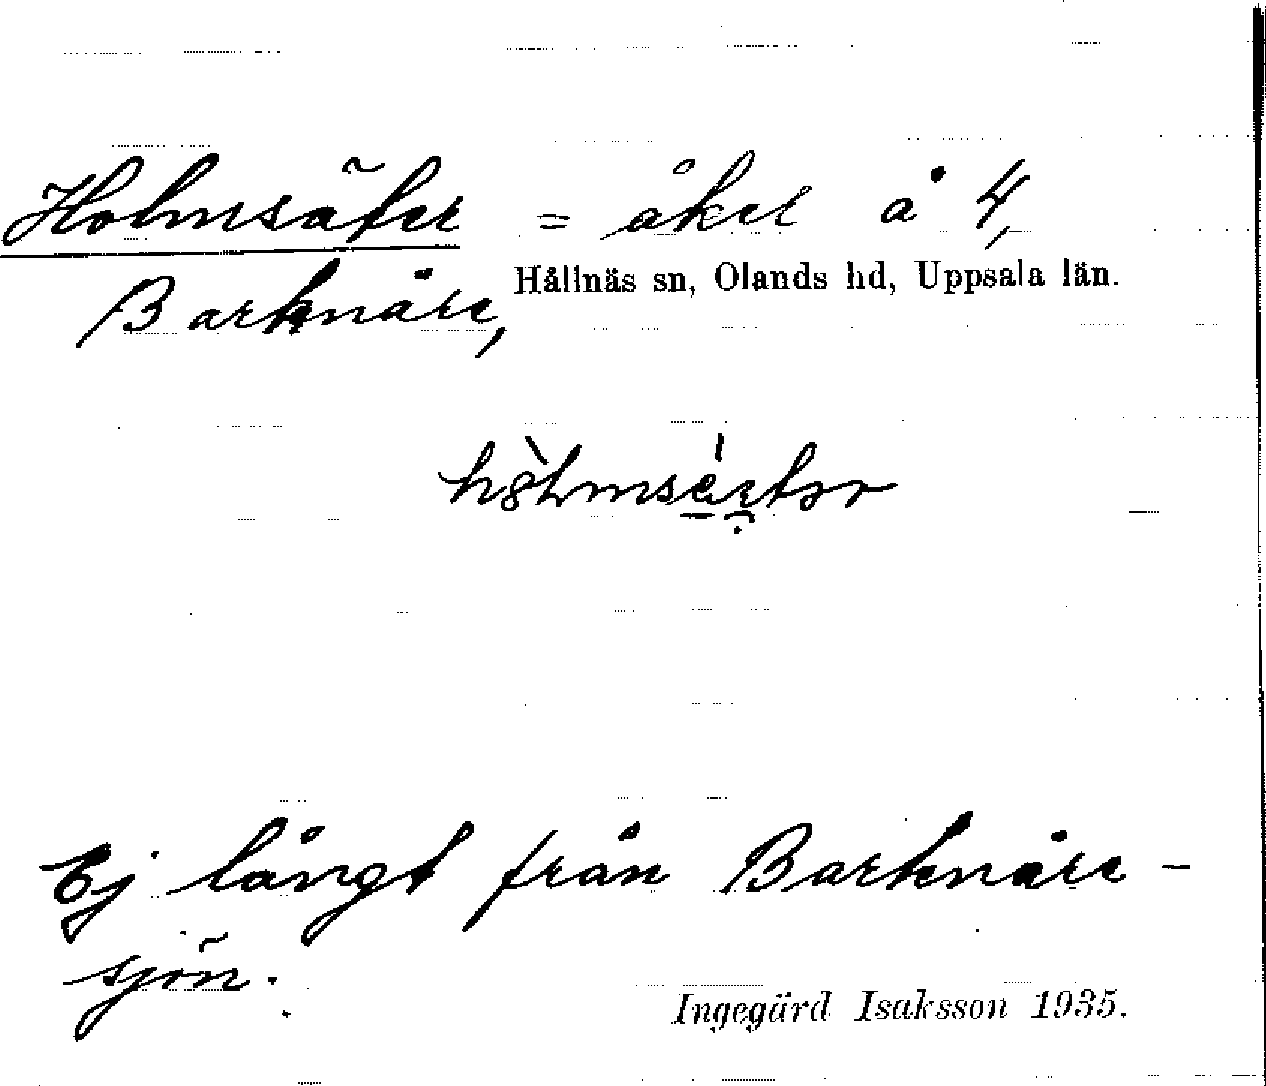 Holmsäter = åker å 4,
Barknåre, Hållnäs sn, Olands hd, Uppsala län.
Ej långt från Barknåre-
sjön.
Ingegärd Isaksson 1935.